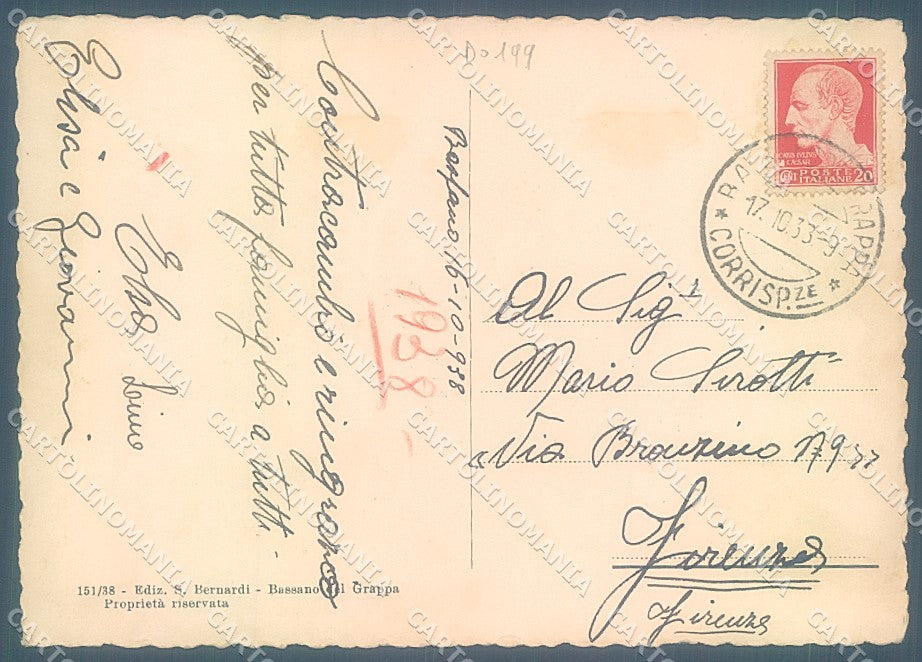 Do 199
Bassano 16-10-938
Contraccambio e ringrazio
per tutta famiglia a tutti.
Elsa Lino
Elisa e Giovanni
1938-
CAIVS IVLIVS
CAESAR
CENT. POSTE ITALIANE 20
BASSANO GRAPPA
17.10.33-9
CORRISP.ZE
Al Sigr
Mario Sirotti
Via Bronzino N 9
Firenze
Firenze
151/38 - Ediz. S. Bernardi - Bassano del Grappa
Proprietà riservata
CARTOLINOMANIA